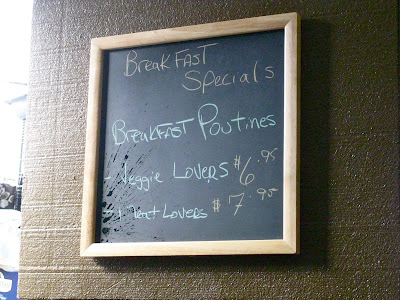 BreakFAST
Specials
BreakFAST Poutines
- Veggie LOVERS $6.95
- Meat LOVERS $7.95